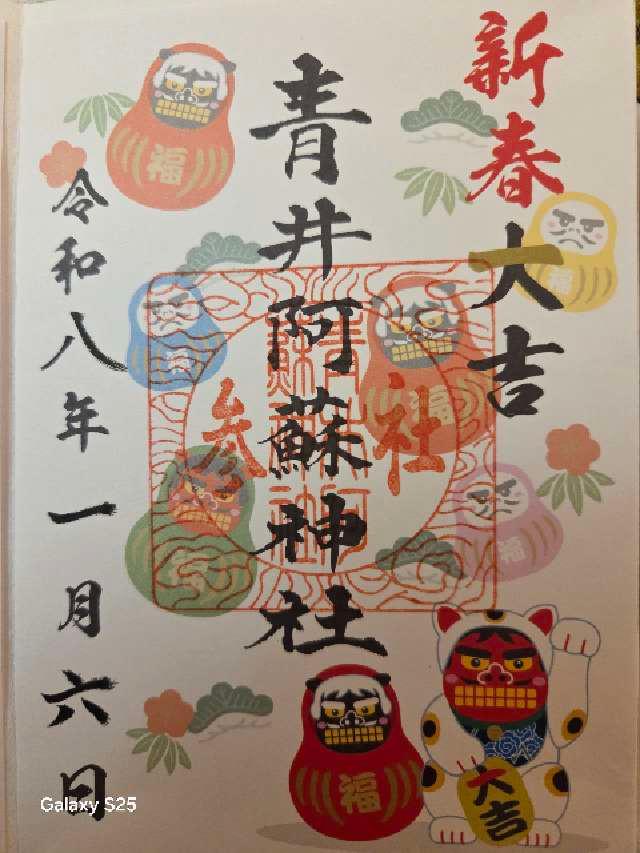 新春大吉
青井阿蘇神社
社参
令和八年一月六日
福
福
福
福
福
福
大吉
Galaxy S25